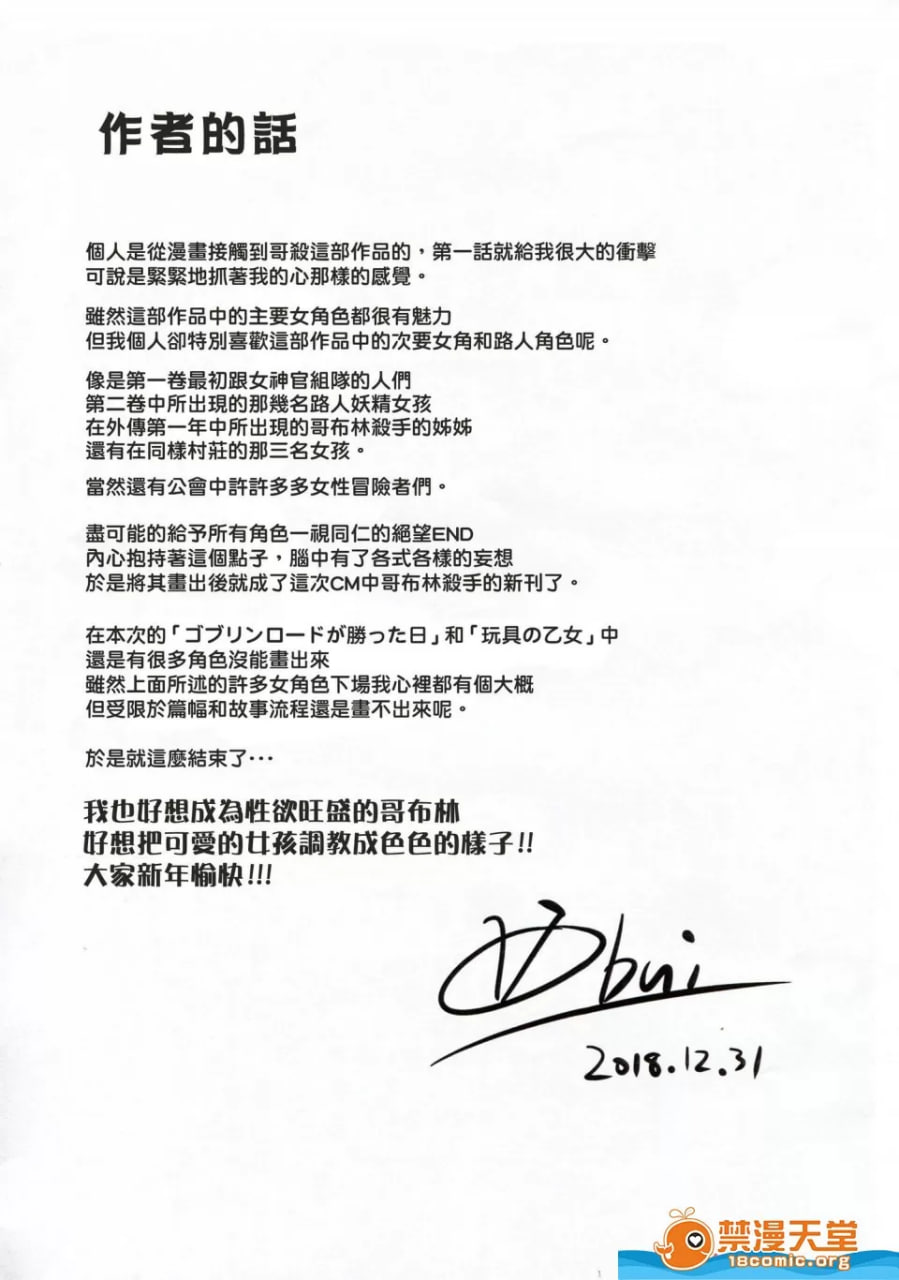 作者的話
個人是從漫畫接觸到哥殺這部作品的，第一話就給我很大的衝擊
可說是緊緊地抓著我的心那樣的感覺。
雖然這部作品中的主要女角色都很有魅力
但我個人卻特別喜歡這部作品中的次要女角和路人角色呢。
像是第一卷最初跟女神官組隊的人們
第二卷中所出現的那幾名路人妖精女孩
在外傳第一年中所出現的哥布林殺手的姊姊
還有在同樣村莊的那三名女孩。
當然還有公會中許許多多女性冒險者們。
盡可能的給予所有角色一視同仁的絕望END
內心抱持著這個點子，腦中有了各式各樣的妄想
於是將其畫出後就成了這次CM中哥布林殺手的新刊了。
在本次的「ゴブリンロードが勝った日」和「玩具の乙女」中
還是有很多角色沒能畫出來
雖然上面所述的許多女角色下場我心裡都有個大概
但受限於篇幅和故事流程還是畫不出來呢。
於是就這麼結束了···
我也好想成為性欲旺盛的哥布林
好想把可愛的女孩調教成色色的樣子!!
大家新年愉快!!!
bui
2018.12.31
禁漫天堂
18comic.org